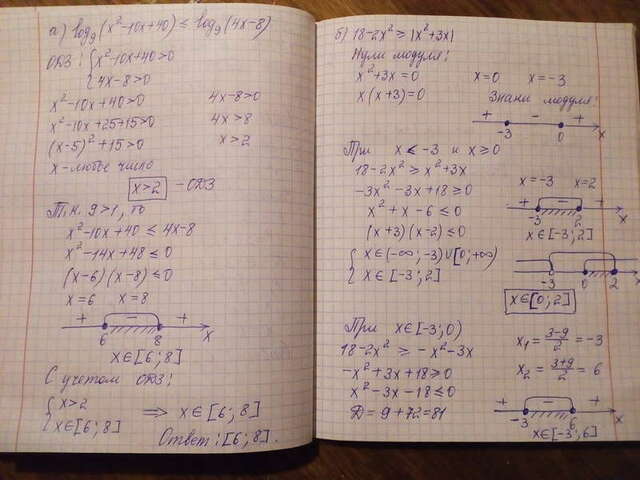 а) log₉(x²-10x+40) ≤ log₉(4x-8)
ОДЗ: { x²-10x+40>0
4x-8>0
x²-10x+40>0 4x-8>0
x²-10x+25+15>0 4x>8
(x-5)²+15>0 x>2
x-любое число
x>2 -ОДЗ
Т.к. 9>1, то
x²-10x+40 ≤ 4x-8
x²-14x+48 ≤ 0
(x-6)(x-8) ≤ 0
x=6 x=8
+ - +
6 8 x
x∈[6;8]
С учетом ОДЗ:
{ x>2
x∈[6;8] ⟹ x∈[6;8]
Ответ: [6;8].
б) 18-2x² ≥ |x²+3x|
Нули модуля:
x²+3x=0 x=0 x=-3
x(x+3)=0 Знаки модуля:
+ - +
-3 0 x
При x<-3 и x≥0
18-2x² ≥ x²+3x
-3x²-3x+18≥0 x=-3 x=2
x²+x-6 ≤ 0 + - +
(x+3)(x-2) ≤ 0 -3 2 x
x∈[-3;2]
{ x∈(-∞;-3)∪[0;+∞)
x∈[-3;2] -3 0 2 x
x∈[0;2]
При x∈[-3;0) x₁ = (3-9)/2 = -3
18-2x² ≥ -x²-3x
-x²+3x+18≥0 x₂ = (3+9)/2 = 6
x²-3x-18≤0
D=9+72=81 + - +
-3 6 x
x∈[-3;6]